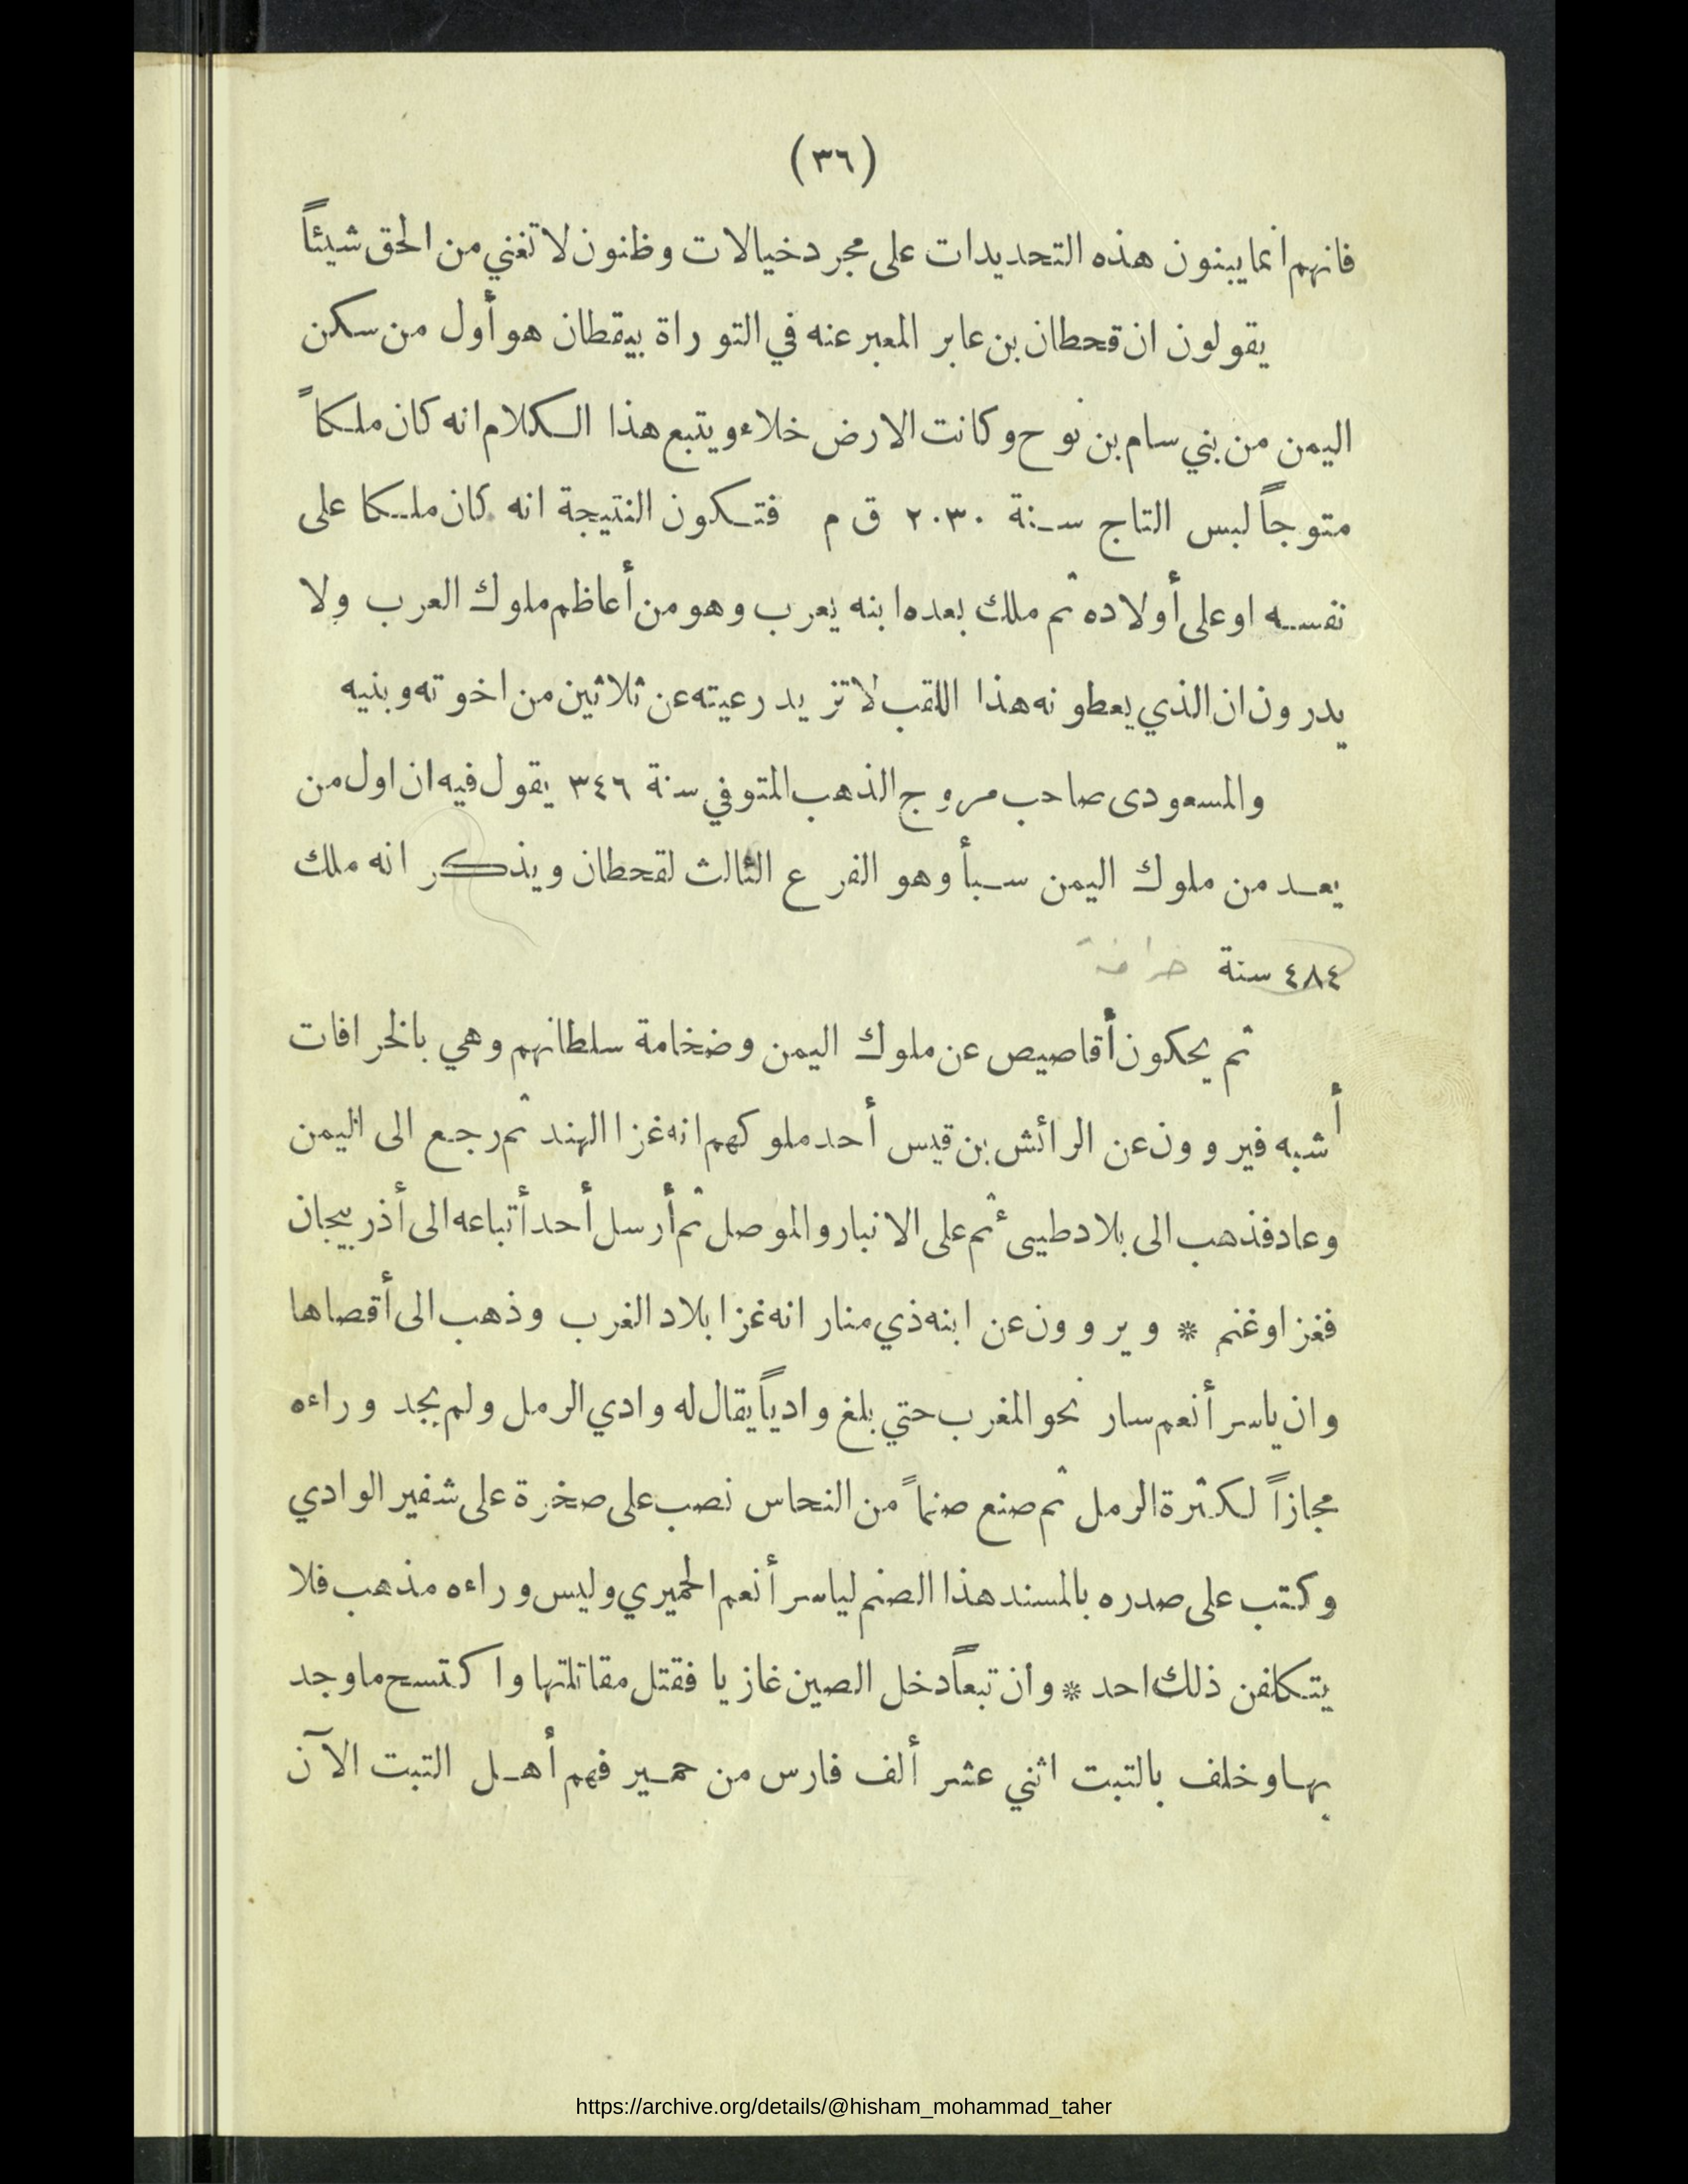 (٣٦)
فانهم انما يبنون هذه التحديدات على مجرد خيالات وظنون لا تغني من الحق شيئاً
يقولون ان قحطان بن عابر المعبر عنه في التوراة بيقطان هو أول من سكن
اليمن من بني سام بن نوح وكانت الارض خلاء ويتبع هذا الكلام انه كان ملكاً
متوجاً لبس التاج سنة ٢٠٣٠ ق م فتكون النتيجة انه كان ملكا على
نفسه او على أولاده ثم ملك بعده ابنه يعرب وهو من أعاظم ملوك العرب ولا
يدرون ان الذي يعطونه هذا اللقب لا تزيد رعيته عن ثلاثين من اخوته وبنيه
والمسعودى صاحب مروج الذهب المتوفي سنة ٣٤٦ يقول فيه ان اول من
يعد من ملوك اليمن سبأ وهو الفرع الثالث لقحطان ويذكر انه ملك
٤٨٤ سنة خرافة
ثم يحكون أقاصيص عن ملوك اليمن وضخامة سلطانهم وهي بالخرافات
أشبه فيروون عن الرائش بن قيس أحد ملوكهم انه غزا الهند ثم رجع الى اليمن
وعاد فذهب الى بلاد طيىء ثم على الانبار والموصل ثم أرسل أحد أتباعه الى أذربيجان
فغزا وغنم * ويروون عن ابنه ذي منار انه غزا بلاد الغرب وذهب الى أقصاها
وان ياسر أنعم سار نحو المغرب حتي بلغ وادياً يقال له وادي الرمل ولم يجد وراءه
مجازاً لكثرة الرمل ثم صنع صنماً من النحاس نصب على صخرة على شفير الوادي
وكتب على صدره بالمسند هذا الصنم لياسر أنعم الحميري وليس وراءه مذهب فلا
يتكلفن ذلك احد * وان تبعاً دخل الصين غازيا فقتل مقاتلتها واكتسح ما وجد
بها وخلف بالتبت اثني عشر ألف فارس من حمير فهم أهل التبت الآن
https://archive.org/details/@hisham_mohammad_taher